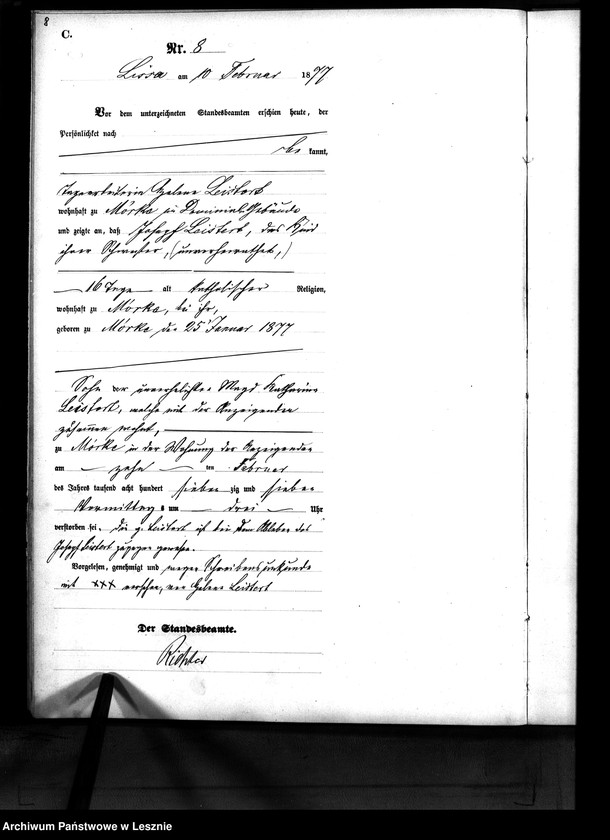 8
C.
Nr. 8
Lissa am 10 Februar 1877
Vor dem unterzeichneten Standesbeamten erschien heute, der
Persönlichkeit nach
be kannt,
Helene Leistert
wohnhaft zu Mórka im Dominial-Gebäude
und zeigte an, daß Joseph Leistert, das Kind
ihrer Schwester, (unverheirathet,)
16 Tage alt katholischer Religion,
wohnhaft zu Mórka, bei ihr,
geboren zu Mórka den 25 Januar 1877
Sohn der unverehelichten Magd Katharina
Leistert, welche mit der Anzeigenden
zusammen wohnt,
zu Mórka in der Wohnung der Anzeigenden
am zehn ten Februar
des Jahres tausend acht hundert sieben zig und sieben
Vormittag s um drei Uhr
verstorben sei. Die p. Leistert ist bei dem Ableben des
Joseph Leistert zugegen gewesen.
Vorgelesen, genehmigt und wegen Schreibensunkunde
mit xxx versehen, von Helene Leistert
Der Standesbeamte.
Richter
Archiwum Państwowe w Lesznie